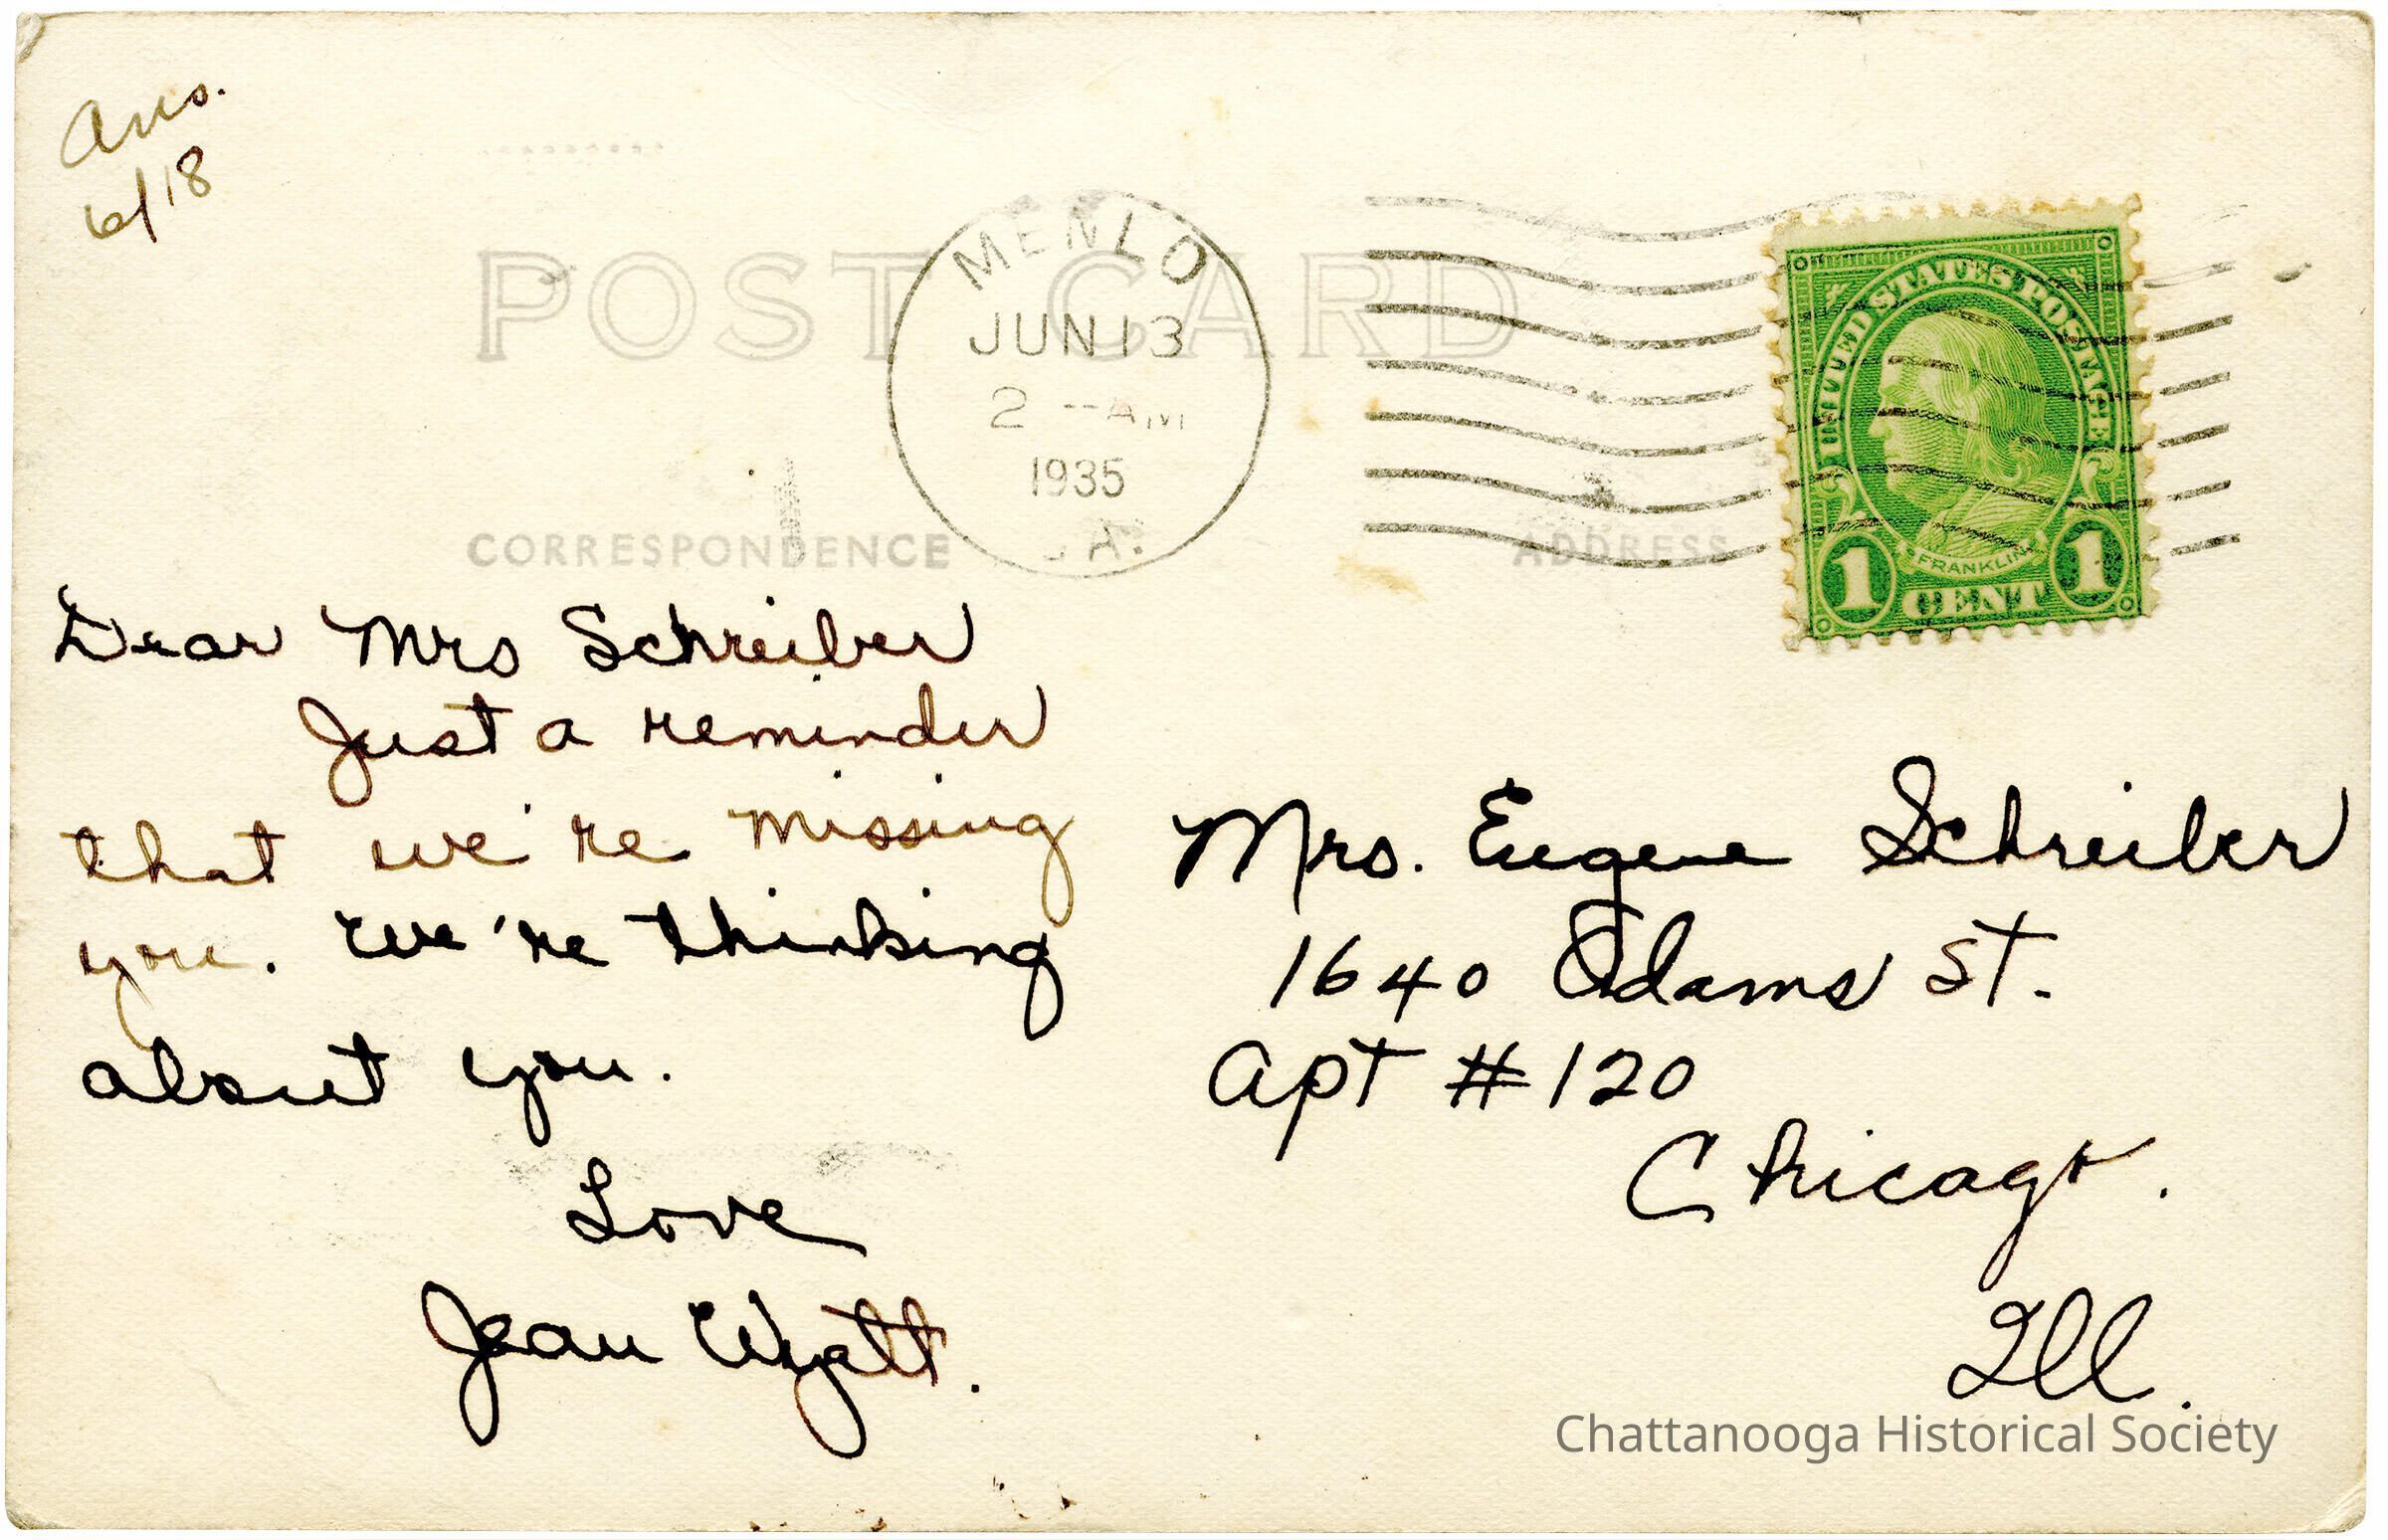 Ans.
6/18
POST CARD
MENLO
JUN 13
2 --AM
1935
A.
UNITED STATES POSTAGE
FRANKLIN
1 CENT 1
CORRESPONDENCE
ADDRESS
Dear Mrs Schreiber
Just a reminder
that we're missing
you. We're thinking
about you.
Love
Jean Wyatt.
Mrs. Eugene Schreiber
1640 Adams St.
Apt #120
Chicago.
Ill.
Chattanooga Historical Society